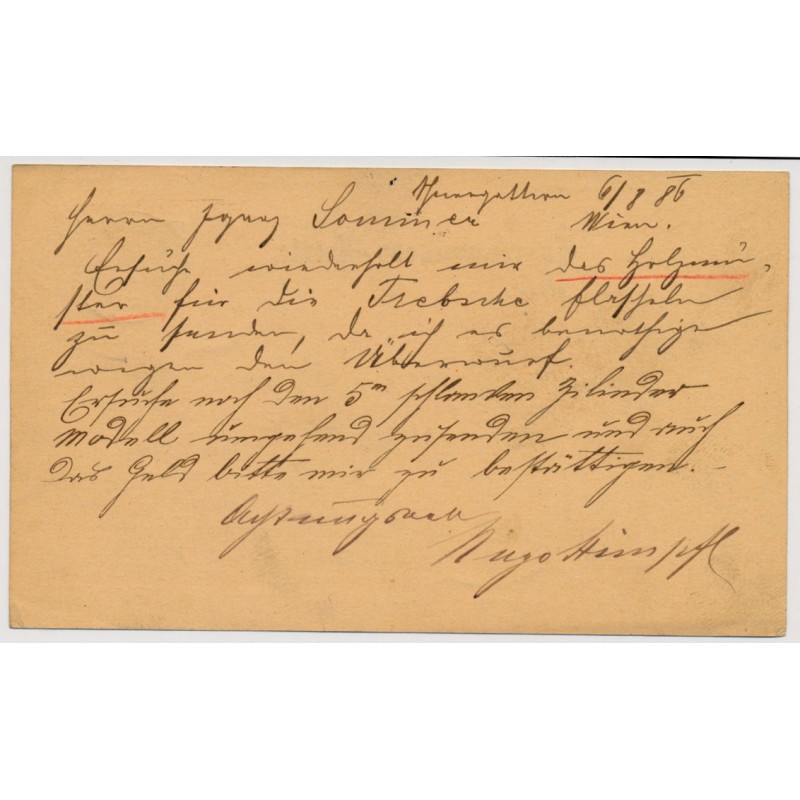 6/8 86
Herrn Ignaz Sommer Wien.
Ersuche wiederholt mir das Holzmu-
ster für die Trebsche Flascheln
zu senden, da ich es benöthige
wegen den Überwurf.
Ersuche noch den 5ᵐ schlanken Zilinder
Modell umgehend zusenden und auch
das Geld bitte mir zu bestättigen. –
Achtungsvoll
Hugo